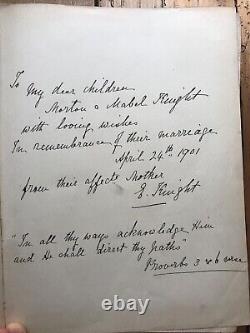 To my dear children
Morton & Mabel Knight
with loving wishes
In remembrance of their marriage
April 24th 1901
from their affecte Mother
E. Knight
"In all thy ways acknowledge Him
and He shall direct thy paths"
Proverbs 3 & 6 verse
ebay